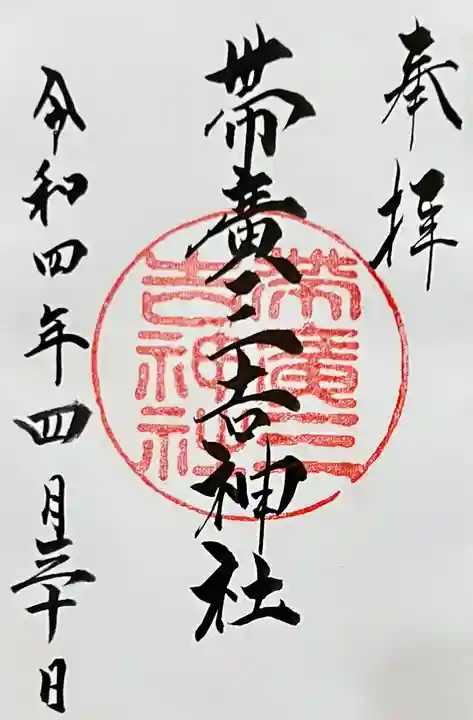 奉拝
帯廣三吉神社
帯廣三吉神社
令和四年四月三十日